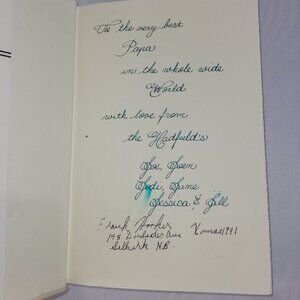 To the very best
Papa
in the whole wide
World
with love from
the Hadfield's
Joe, Joen
Jodi, Jane
Jessica & Jill
Frank Xmas 1991
148 Ave
Selkirk